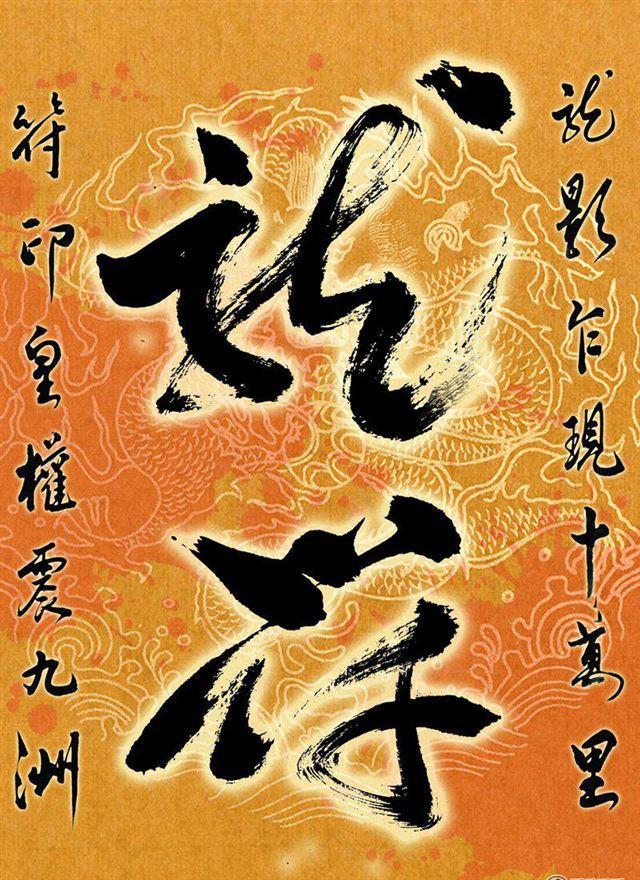 龍影乍現十萬里
龍符
符印皇權震九洲